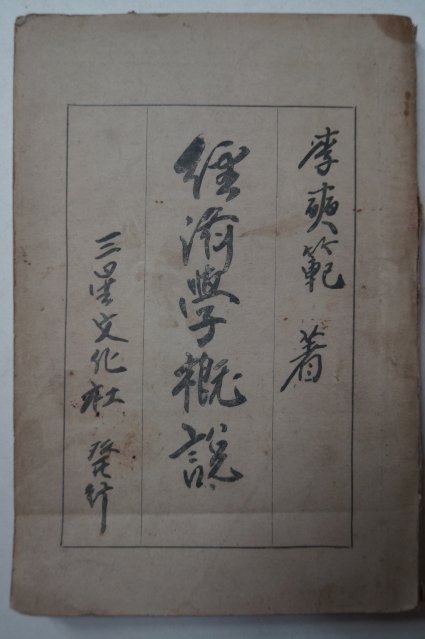 李奭範 著
經濟學概説
三星文化社 發行